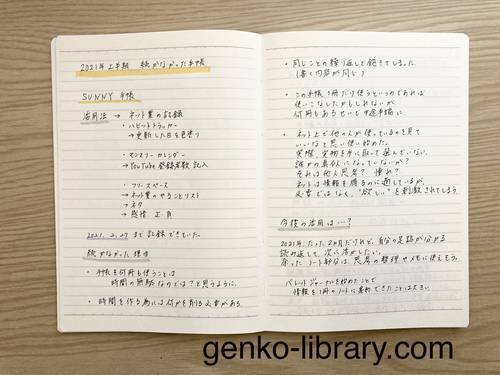 2021年上半期 続かなかった手帳
SUNNY 手帳
活用法 → ネット業の記録
・ハビットトラッカー
→更新した日を色塗り
・マンスリーカレンダー
→YouTube 登録者数記入
・フリースペース
→ネット業のやることリスト
→ネタ
→感情 正負
2021.2.27 まで記録できていた。
続かなかった理由
・手帳を何冊も使うことは
時間の無駄なのでは?と思うように。
・時間を作る為には何かを削る必要がある
・同じことの繰り返しで飽きてしまった。
(書く内容が同じ)
・この手帳1冊だけ使うというのであれば
使いこなしたかもしれないが、
何冊もあるせいで中途半端に
・ネット上で他の人が使っているのを見て
いいなと思い使い始めた。
実際、実物を手に取って選んでいない。
誰かの真似になっていないか?
それは他人思考? 憧れ?
ネットは情報を得るのに適しているが、
必要ではなく、"欲しい"を刺激されてしまう
今後の活用は…?
2021年、たった2か月だけれど、自分の足跡が分かる
読み返して、次に活かしたい。
余ったノート部分は、思考の整理やメモに使えそう。
バレットジャーナルを始めたことで
情報を1冊のノートに集約できたことは大きい
genko-library.com